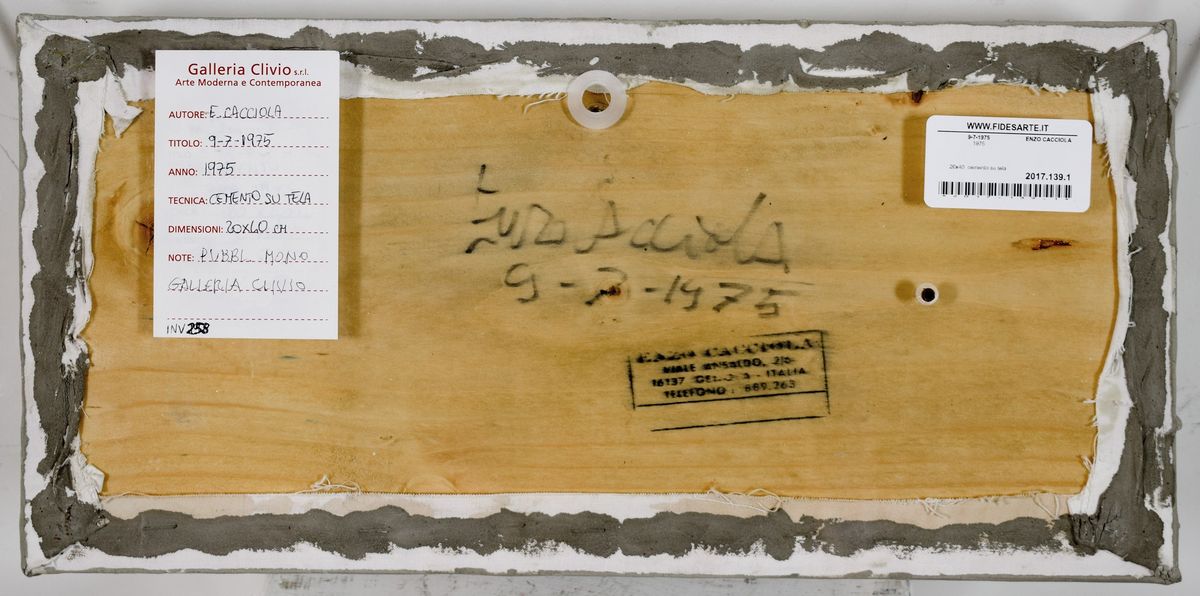 Galleria Clivio s.r.l.
Arte Moderna e Contemporanea
AUTORE: E. CACCIOLA
TITOLO: 9-7-1975
ANNO: 1975
TECNICA: CEMENTO SU TELA
DIMENSIONI: 20x40 CM
NOTE: PUBBL. MONO
GALLERIA CLIVIO
INV 258
WWW.FIDESARTE.IT
9-7-1975 ENZO CACCIOLA
1975
20x40 cemento su tela
2017.139.1
Enzo Cacciola
9-7-1975
ENZO CACCIOLA
VIALE ANSALDO, 2/6
16137 GENOVA - ITALIA
TELEFONO: 889.263